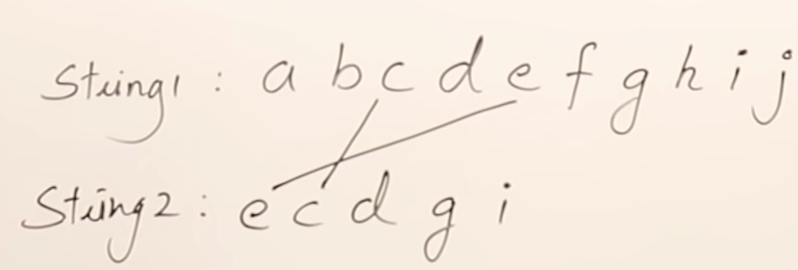 String1 : a b c d e f g h i j
String2 : e c d g i